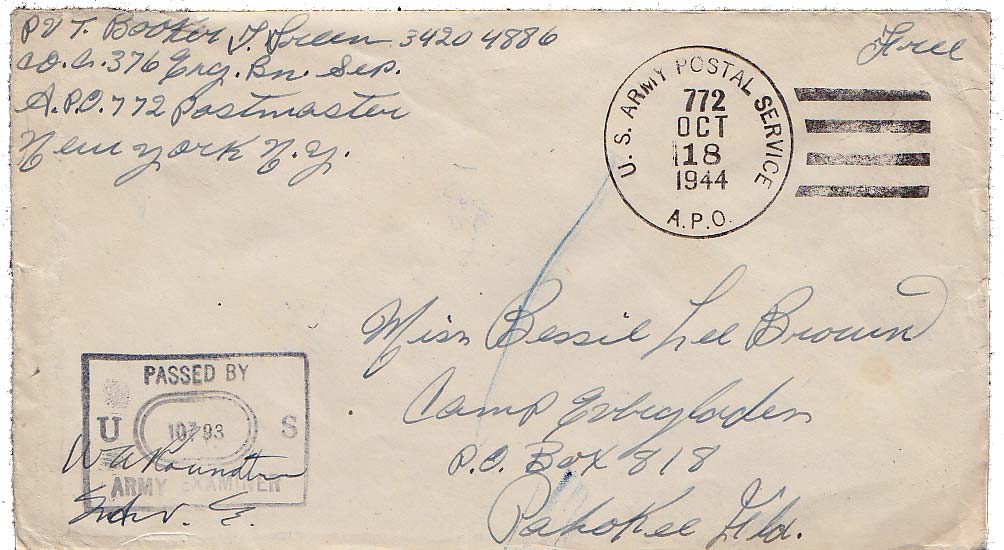 PVT. Booker T. Green 34204886
CO. A. 376 Eng. Bn. Sep.
A.P.O. 772 Postmaster
New York N.Y.
Free
U. S. ARMY POSTAL SERVICE
772
OCT
18
1944
A.P.O.
Miss Bessie Lee Brown
Camp Everglades
P.O. Box 818
Pahokee Fla.
PASSED BY
U 10793 S
ARMY EXAMINER